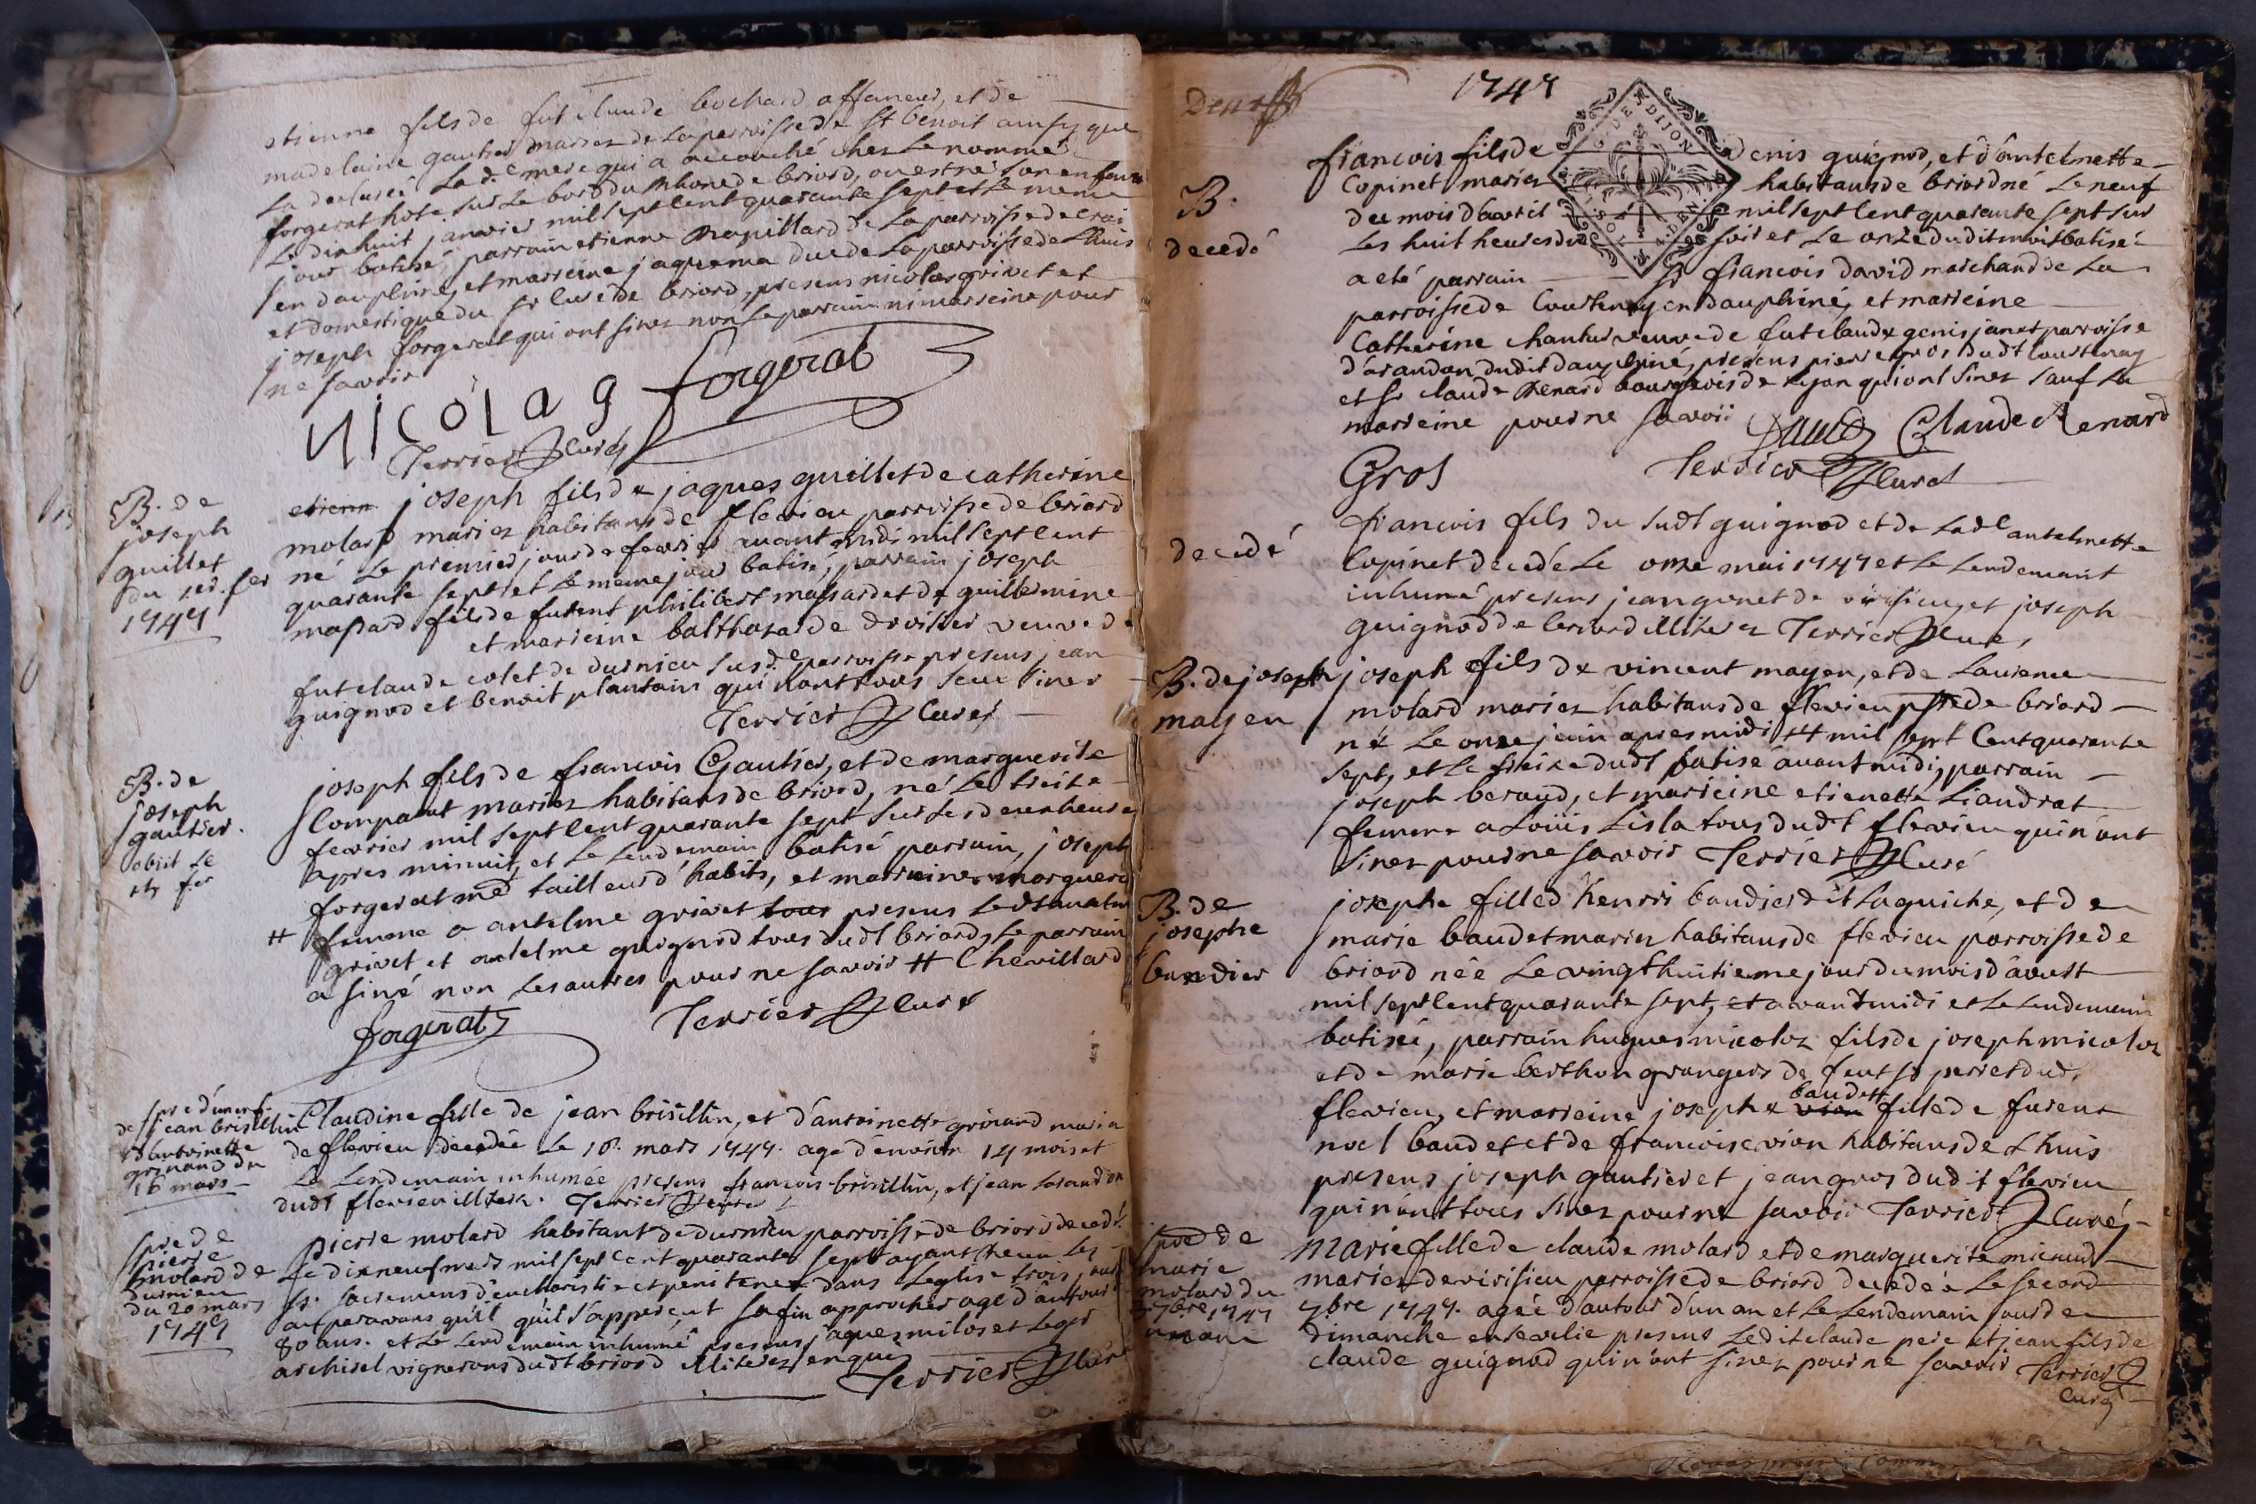 etienne fils de fut claude bochard affaneur, et de
madelaine gautier mariez de la parroisse de st benoit ainsy que
la declaré la de mere qui a accouché chez le nommé
forgerat hote sur le bord du Rhone de briord, ou est né son enfant
le dixhuit janvier mil sept cent quarante sept et le meme
jour batisé, parrain etienne papillard de la parroisse de
en dauphiné, et marreine jaquema duc de la parroisse de Lhuis
et domestique du sr curé de briord, presens nicolas grivet et
joseph forgerat qui ont sinez non le parrain ni marreine pour
ne savoir
Nicolas forgerat
Terrier Curé
B. de
joseph
guillet
du 1er. fer
1747
etienne joseph fils de jaques guillet de catherine
molard mariez habitans de flevieu parroisse de briord
né le premier jour de fevrier avant midi mil sept cent
quarante sept et le meme jour batisé, parrain joseph
massard fils de furent philibert massard et de guillermine
et marreine balthazarde drvillier veuve de
fut claude colet de durnieu susde parroisse presens jean
guignod et benoit plantain qui n'ont tous seu siner
Terrier Curé
B. de
joseph
gautier.
obiit le
fer
joseph fils de francois Gautier, et de marguerite
Compant mariez habitans de briord, né le treize
fevrier mil sept cent quarante sept sur les deux heures
apres minuit, et le lendemain batisé parrain, joseph
forgerat me tailleur d'habits, et marreine marguerite
# femme a antelme grivet tous presens led
grivet et antelme guignod tous dudt briord, le parrain
a siné non les autres pour ne savoir # Chevillard
forgerat Terrier Curé
spre d'un enf.
de jean brisillin
d'antoinette
grinand du
16 mars
Claudine fille de jean brisillin, et d'antoinette grinand mariez
de flevieu decedée le 16. mars 1747. age d'environ 14 mois et
le lendemain inhumée presens francois brisillin, et jean
dudt flevieu illiterez. Terrier Curé
spre de
piere
molard de
durnieu
du 20 mars
1747
pierre molard habitant de durnieu parroisse de briord decedé
le dixneuf mars mil sept cent quarante sept ayant receu les
sts. sacremens d'eucharistie et penitence dans leglise trois jours
auparavans qu'il qu'il s'apperçut sa fin approcher agé d'autour
80 ans. et le lendemain inhumé presens jaques milos et leger
archirel vignerons dudt briord illiterez enquis
Terrier Curé
1747
G. DE DIJON
B.
decedé
francois fils de denis guignod, et d'antelmette
Copinet mariez habitans de briord né le neuf
du mois d'avril mil sept cent quarante sept sur
les huit heures du soir et le onze dudit mois batisé
a eté parrain sr francois david marchand de la
parroisse de Courtenay en dauphiné, et marreine
Catherine chantur veuve de fut claude genis janet parroisse
d'arandon dudit dauphiné, presens pierre gros dudt Courtenay
et sr claude Renard bourgeois de Lyon qui ont sinez sauf la
marreine pour ne savoir David Claude Renard
Gros Terrier Curé
decedé
francois fils du sudt guignod et de lade antelmette
Copinet decedé le onze mai 1747 et le lendemain
inhumé presens jean genet de virisieu, et joseph
guignod de briord illiterez Terrier Curé
B. de joseph
mayen
joseph fils de vincent mayen, et de laurence
molard mariez habitans de flevieu psse de briord
né le onze juin apres midi # mil sept Cent quarante
sept, et le treize dudt batisé avant midi, parrain
joseph beraud, et marreine etienette Liaudrat
femme a Loüis Lisla tous dudt flevieu qui n'ont
sinez pour ne savoir Terrier Curé
B. de
josephe
baudier
josephe fille d'henri baudier dit laguiche, et de
marie baudet mariez habitans de flevieu parroisse de
briord née le vingt huitieme jour du mois d'avust
mil sept cent quarante sept, et avant midi et le lendemain
batisée, parrain hugues micoloz fils de joseph micoloz
et de marie berthon grangers de feut sr perret dud.
flevieu, et marreine josephe vion baudet fille de furent
noel baudet et de francoise vion habitans de Lhuis
presens joseph gautier et jean gros dudit flevieu
qui n'ont tous sinez pour ne savoir Terrier Curé
spre de
marie
molard du
7bre 1747
Marie fille de claude molard et de marguerite micaud
mariez de virisieu parroisse de briord decedée le second
7bre 1747. agée d'autour d'un an et le lendemain jour de
dimanche ensevelie presens ledit claude pere et jean fils de
claude guignod qui n'ont sinez pour ne savoir Terrier
Curé